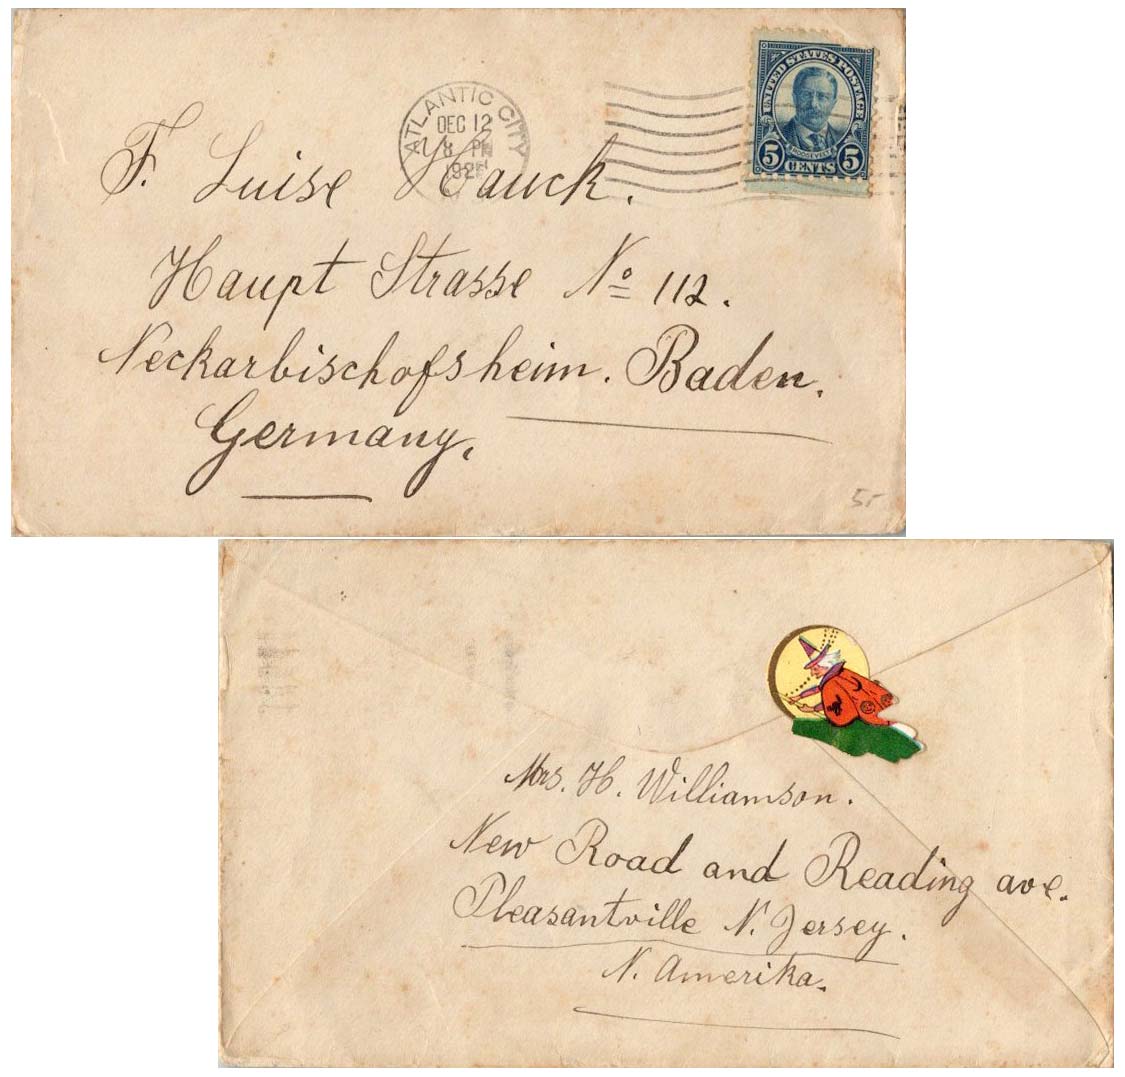 ATLANTIC CITY
DEC 12
8 PM
UNITED STATES POSTAGE
ROOSEVELT
5 CENTS 5
F. Luise Hauck.
Haupt Strasse No 112.
Neckarbischofsheim. Baden.
Germany,
Mrs. H. Williamson.
New Road and Reading ave.
Pleasantville N. Jersey.
N. Amerika.